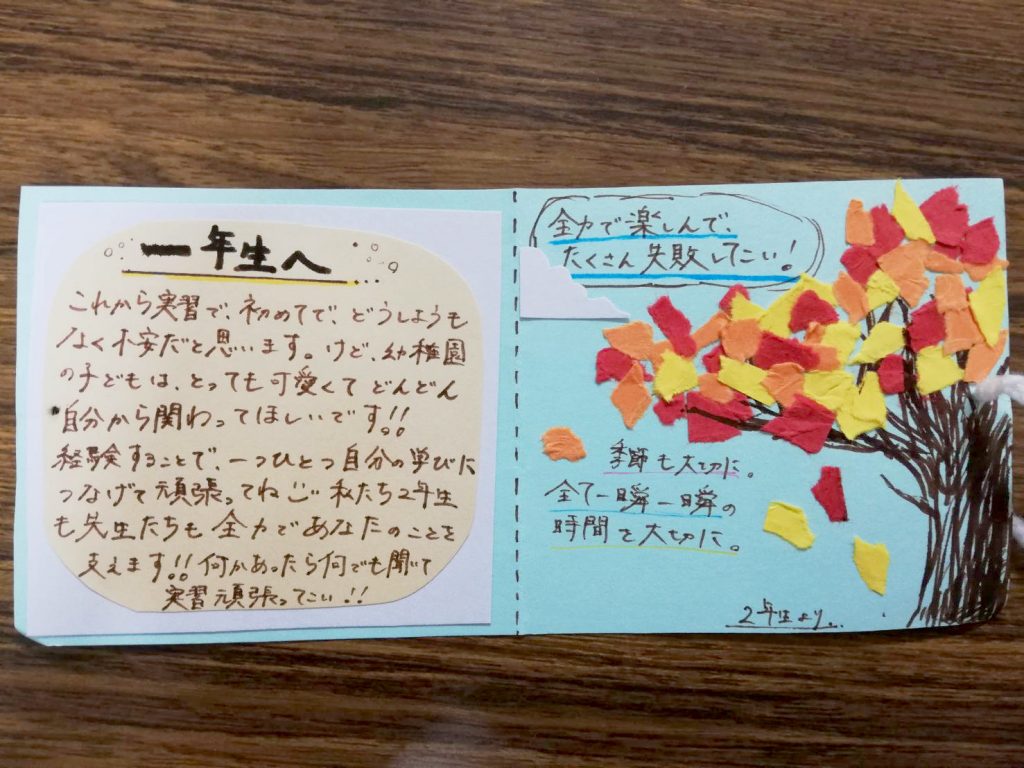 一年生へ
これから実習で、初めてで、どうしようも
なく不安だと思います。けど、幼稚園
の子どもは、とっても可愛くてどんどん
自分から関わってほしいです!!
経験することで、一つひとつ自分の学びに
つなげて頑張ってね 私たち2年生
も先生たちも全力であなたのことを
支えます!!何かあったら何でも聞いて
実習頑張ってこい!!
全力で楽しんで、
たくさん失敗してこい!
季節も大切に。
全て一瞬一瞬の
時間を大切に。
2年生より。